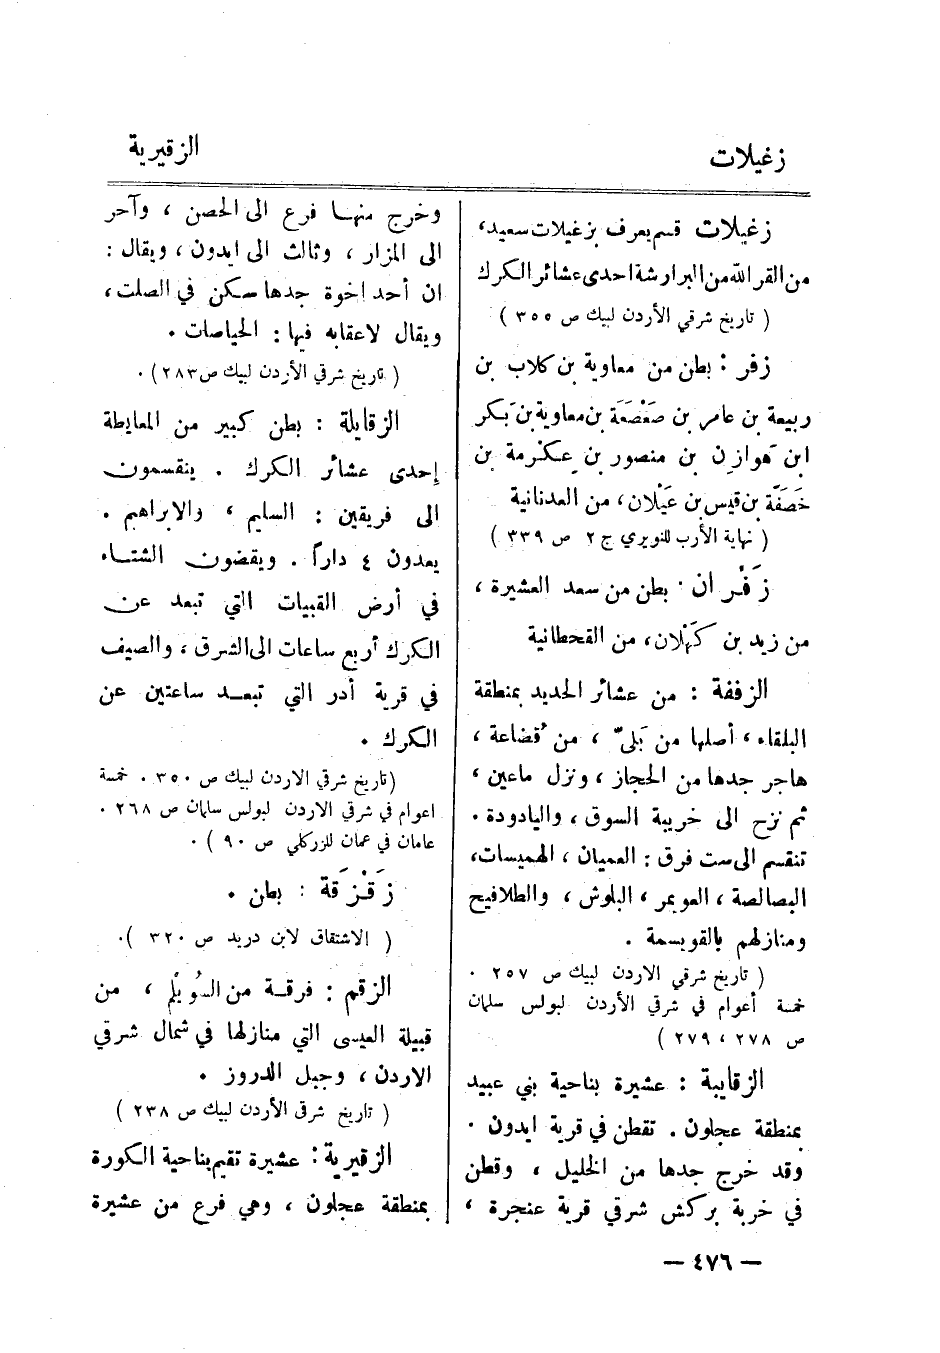 زغيلات
الزقيرية
زغيلات قسم يعرف بزغيلات سعيد،
من القرالله من البرارشة احدى عشائر الكرك
( تاريخ شرقي الأردن لبيك ص ٣٥٥ )
زفر : بطن من معاوية بن كلاب بن
ربيعة بن عامر بن صَعْصَعَة بن معاوية بن بَكر
ابن هَوازِن بن منصور بن عِكْرمة بن
خَصَفَة بن قيس بن عَيْلان، من العدنانية
( نهاية الأرب للنويري ج ٢ ص ٣٣٩ )
زَفْران . بطن من سعد العشيرة ،
من زيد بن كَهْلان، من القحطانية
الزففة : من عشائر الحديد بمنطقة
البلقاء ، أصلها من بَلِيّ ، من قُضاعة ،
هاجر جدها من الحجاز ، ونزل ماعين ،
ثم نزح الى خريبة السوق ، واليادودة .
تنقسم الى ست فرق : العميان ، الهميسات،
البصالصة ، العويمر ، البلوش ، والطلافيح
ومنازلهم بالقويسمة .
( تاريخ شرقي الاردن لبيك ص ٢٥٧ .
خمسة أعوام في شرقي الأردن لبولس سلمان
ص ٢٧٨ ، ٢٧٩ )
الزقايبة : عشيرة بناحية بني عبيد
بمنطقة عجلون . تقطن في قرية ايدون .
وقد خرج جدها من الخليل ، وقطن
في خربة بركش شرقي قرية عنجرة ،
وخرج منها فرع الى الحصن ، وآخر
الى المزار ، وثالث الى ايدون ، ويقال :
ان أحد اخوة جدها سكن في الصلت ،
ويقال لاعقابه فيها : الحياصات .
( تاريخ شرقي الأردن لبيك ص ٢٨٣ ) .
الزقايلة : بطن كبير من المعايطة
إحدى عشائر الكرك . ينقسمون
الى فريقين : السليم ، والابراهيم .
يعدون ٤ داراً . ويقضون الشتاء
في أرض القبيات التي تبعد عن
الكرك أربع ساعات الى الشرق ، والصيف
في قرية أدر التي تبعد ساعتين عن
الكرك .
(تاريخ شرقي الاردن لبيك ص ٣٥٠ . خمسة
اعوام في شرقي الاردن لبولس سلمان ص ٢٦٨ .
عامان في عمان للزركلي ص ٩٠ ) .
زَقْزَقة : بطن .
( الاشتقاق لابن دريد ص ٣٢٠ ).
الزقم : فرقة من السُويْلم ، من
قبيلة العيسى التي منازلها في شمال شرقي
الاردن ، وجبل الدروز .
( تاريخ شرقي الأردن لبيك ص ٢٣٨ )
الزقيرية : عشيرة تقيم بناحية الكورة
بمنطقة عجلون ، وهي فرع من عشيرة
— ٤٧٦ —